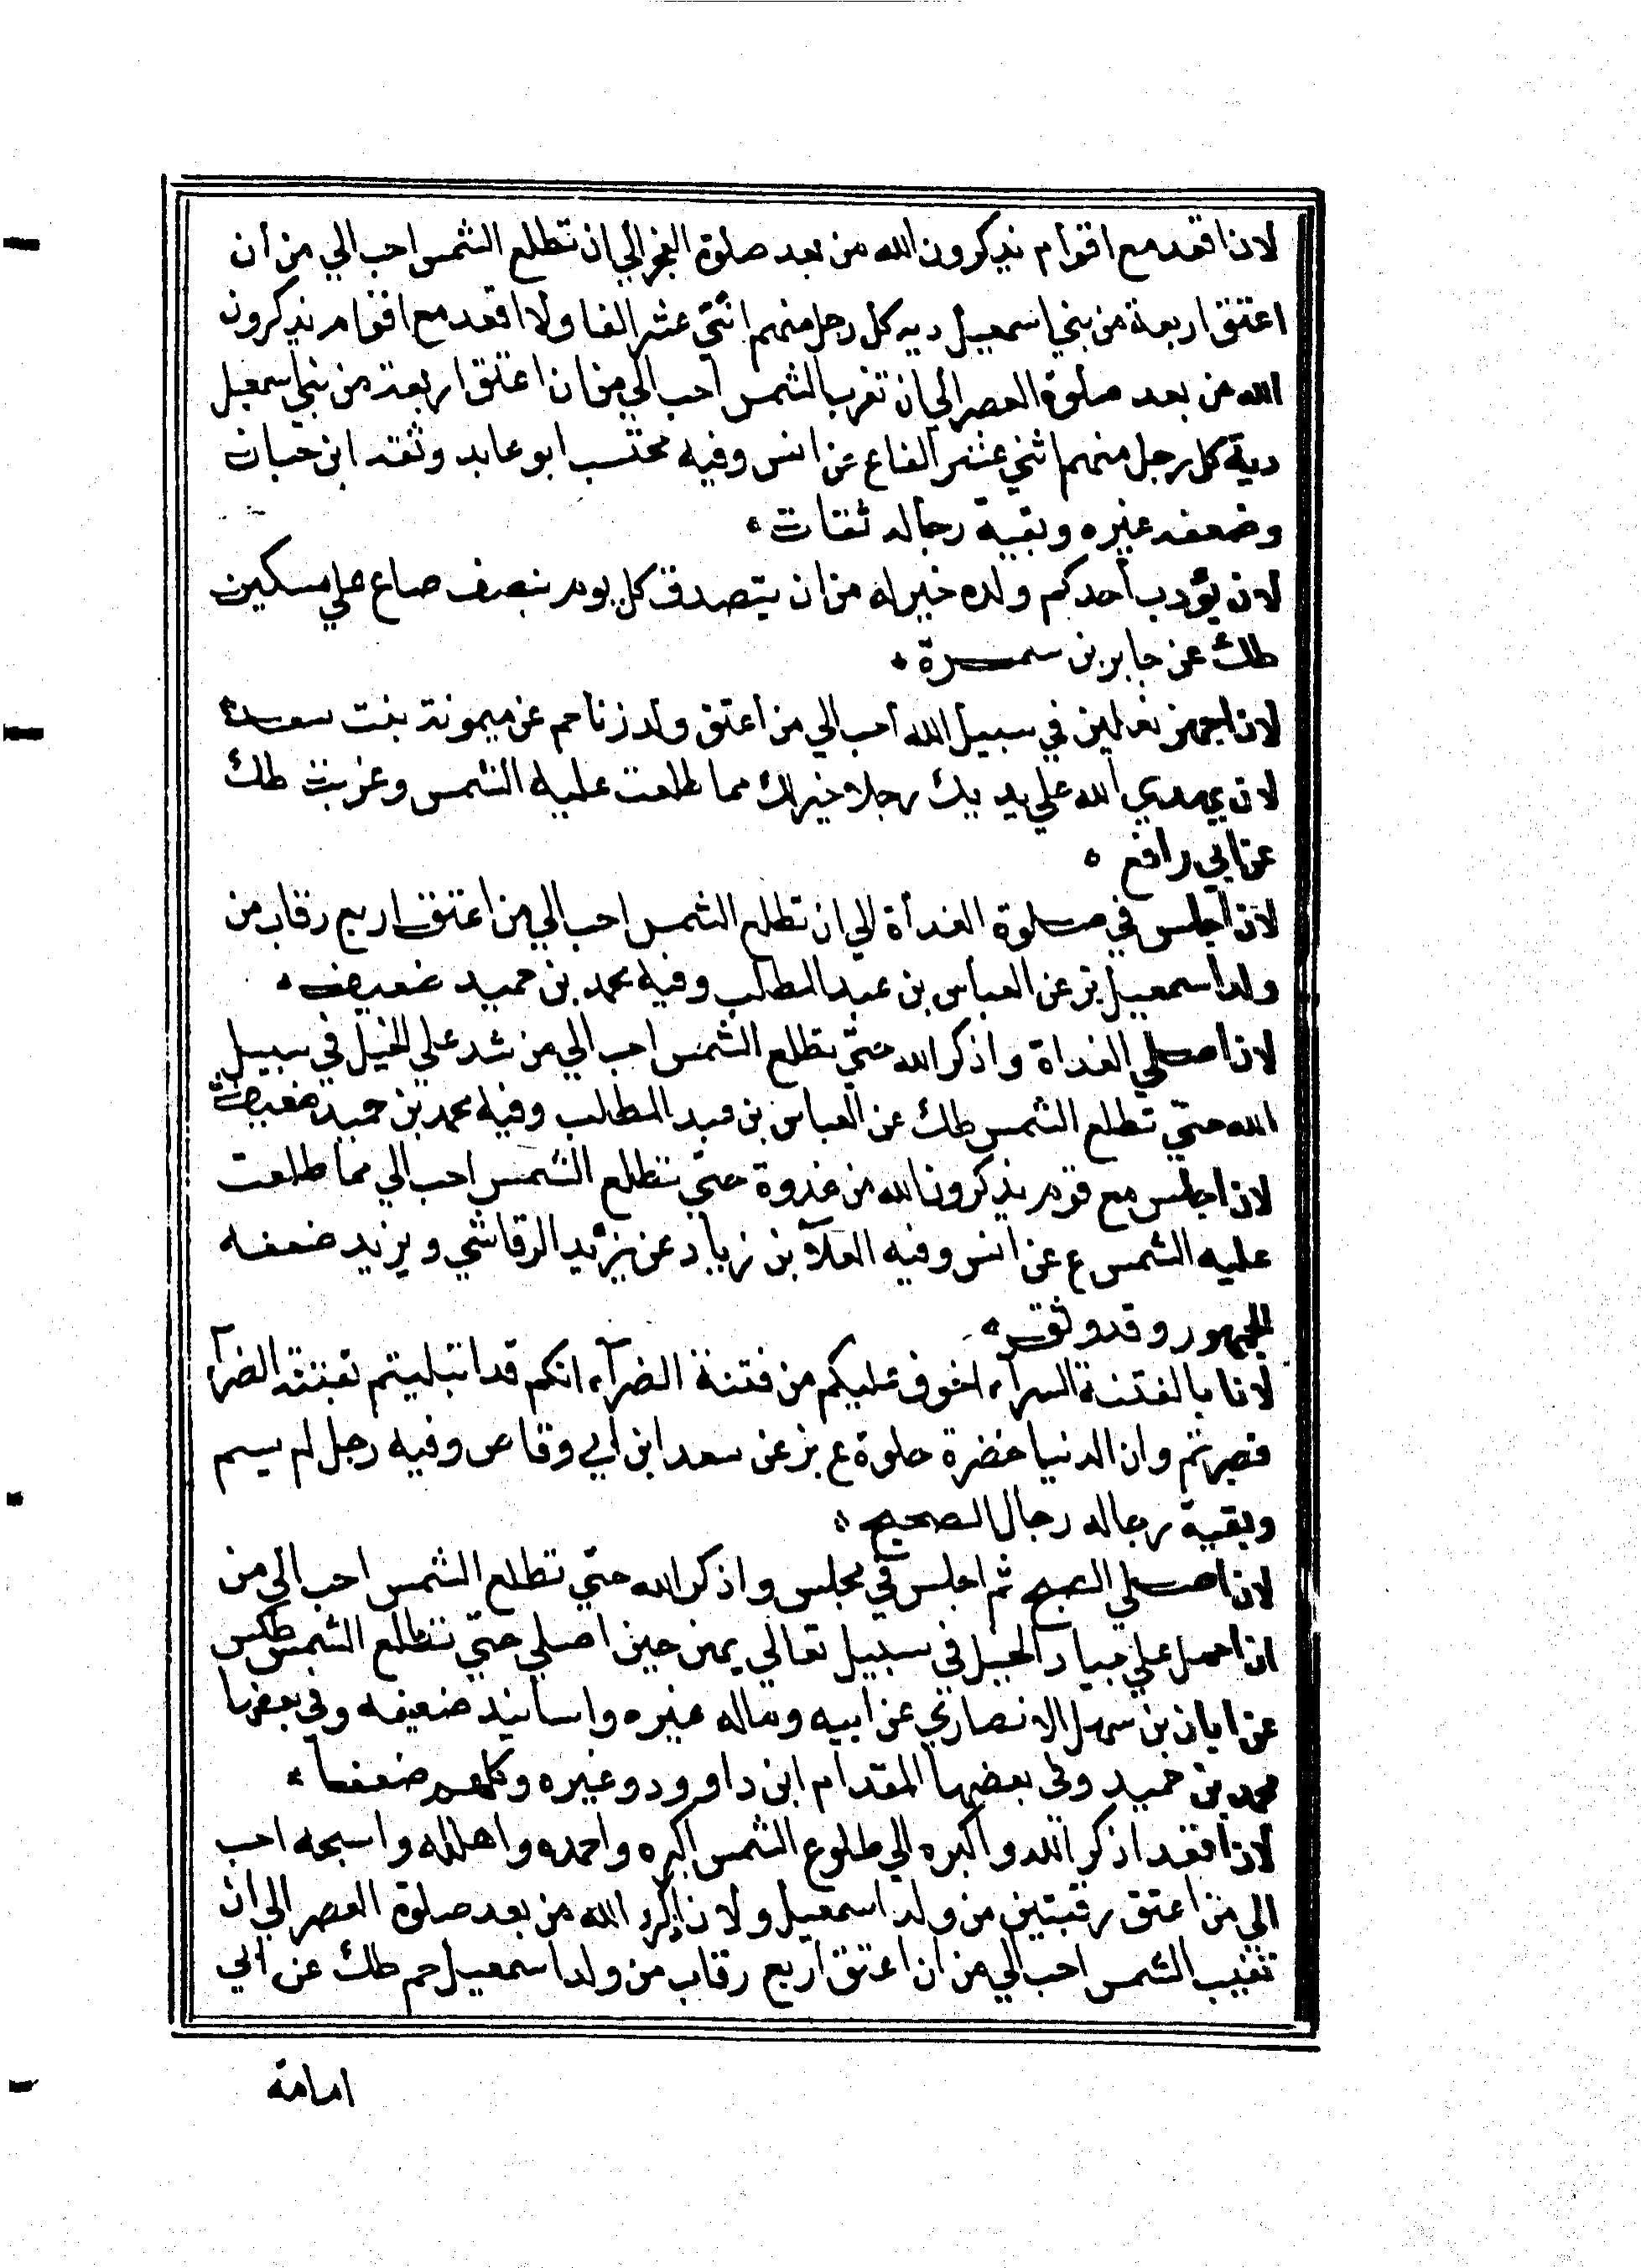 لان اقعد مع اقوام يذكرون الله من بعد صلوة الفجر الي ان تطلع الشمس احب الي من ان
اعتق اربعة من بني اسمعيل ديه كل رجل منهم اثني عشر الفا ولا اقعد مع اقوام يذكرون
الله من بعد صلوة العصر الي ان تغرب الشمس احب الي من ان اعتق اربعة من بني اسمعيل
دية كل رجل منهم اثني عشر الفا ع عن انس وفيه محتسب ابو عابد وثقه ابن حبان
وضعفه غيره وبقية رجاله ثقات
لان يؤدب أحدكم ولده خير له من ان يتصدق كل يوم بنصف صاع علي مسكين
طك عن جابر بن سمرة
لان اجهز نعلين في سبيل الله احب الي من اعتق ولد زنا حم عن ميمونة بنت سعد
لان يهدي الله علي يديك رجلا خير لك مما طلعت عليه الشمس وغربت طك
عن ابي رافع
لان اجلس في صلوة الغدأة الي ان تطلع الشمس احب الي من اعتق اربع رقاب من
ولد اسمعيل بز عن العباس بن عبد المطلب وفيه محمد بن حميد ضعيف
لان اصلي الغداة واذكر الله حتي تطلع الشمس احب الي من شد علي الخيل في سبيل
الله حتي تطلع الشمس طك عن العباس بن عبد المطلب وفيه محمد بن حميد ضعيف
لان اجلس مع قوم يذكرون الله من غدوة حتي تطلع الشمس احب الي مما طلعت
عليه الشمس ع عن انس وفيه العلآ بن زياد عن يزيد الرقاشي ويزيد ضعفه
الجمهور وقد وثق
لانا بالفتنة السراء اخوف عليكم من فتنة الضرآء انكم قد ابتليتم بفتنة الضرآ
فصبرتم وان الدنيا خضرة حلوة ع بز عن سعد ابن ابي وقاص وفيه رجل لم يسم
وبقية رجاله رجال الصحيح
لان اصلي الصبح ثم اجلس في مجلس واذكر الله حتي تطلع الشمس احب الي من
ان احمل علي جياد الخيل في سبيل تعالي يمن حين اصلي حتي تطلع الشمس طكس
عن ايان بن سهل الانصاري عن ابيه وماله غيره واسانيد ضعيفه وفى بعضها
محمد بن حميد وفى بعضها المقدام ابن داوود وغيره وكلهم ضعفآ
لان اقعد اذكر الله واكبره الي طلوع الشمس اكبره واحمده واهلله واسبحه احب
الي من اعتق رقبتين من ولد اسمعيل ولان اذكر الله من بعد صلوة العصر الي ان
تغيب الشمس احب الي من ان اعتق اربع رقاب من ولد اسمعيل حم طك عن ابي
امامة